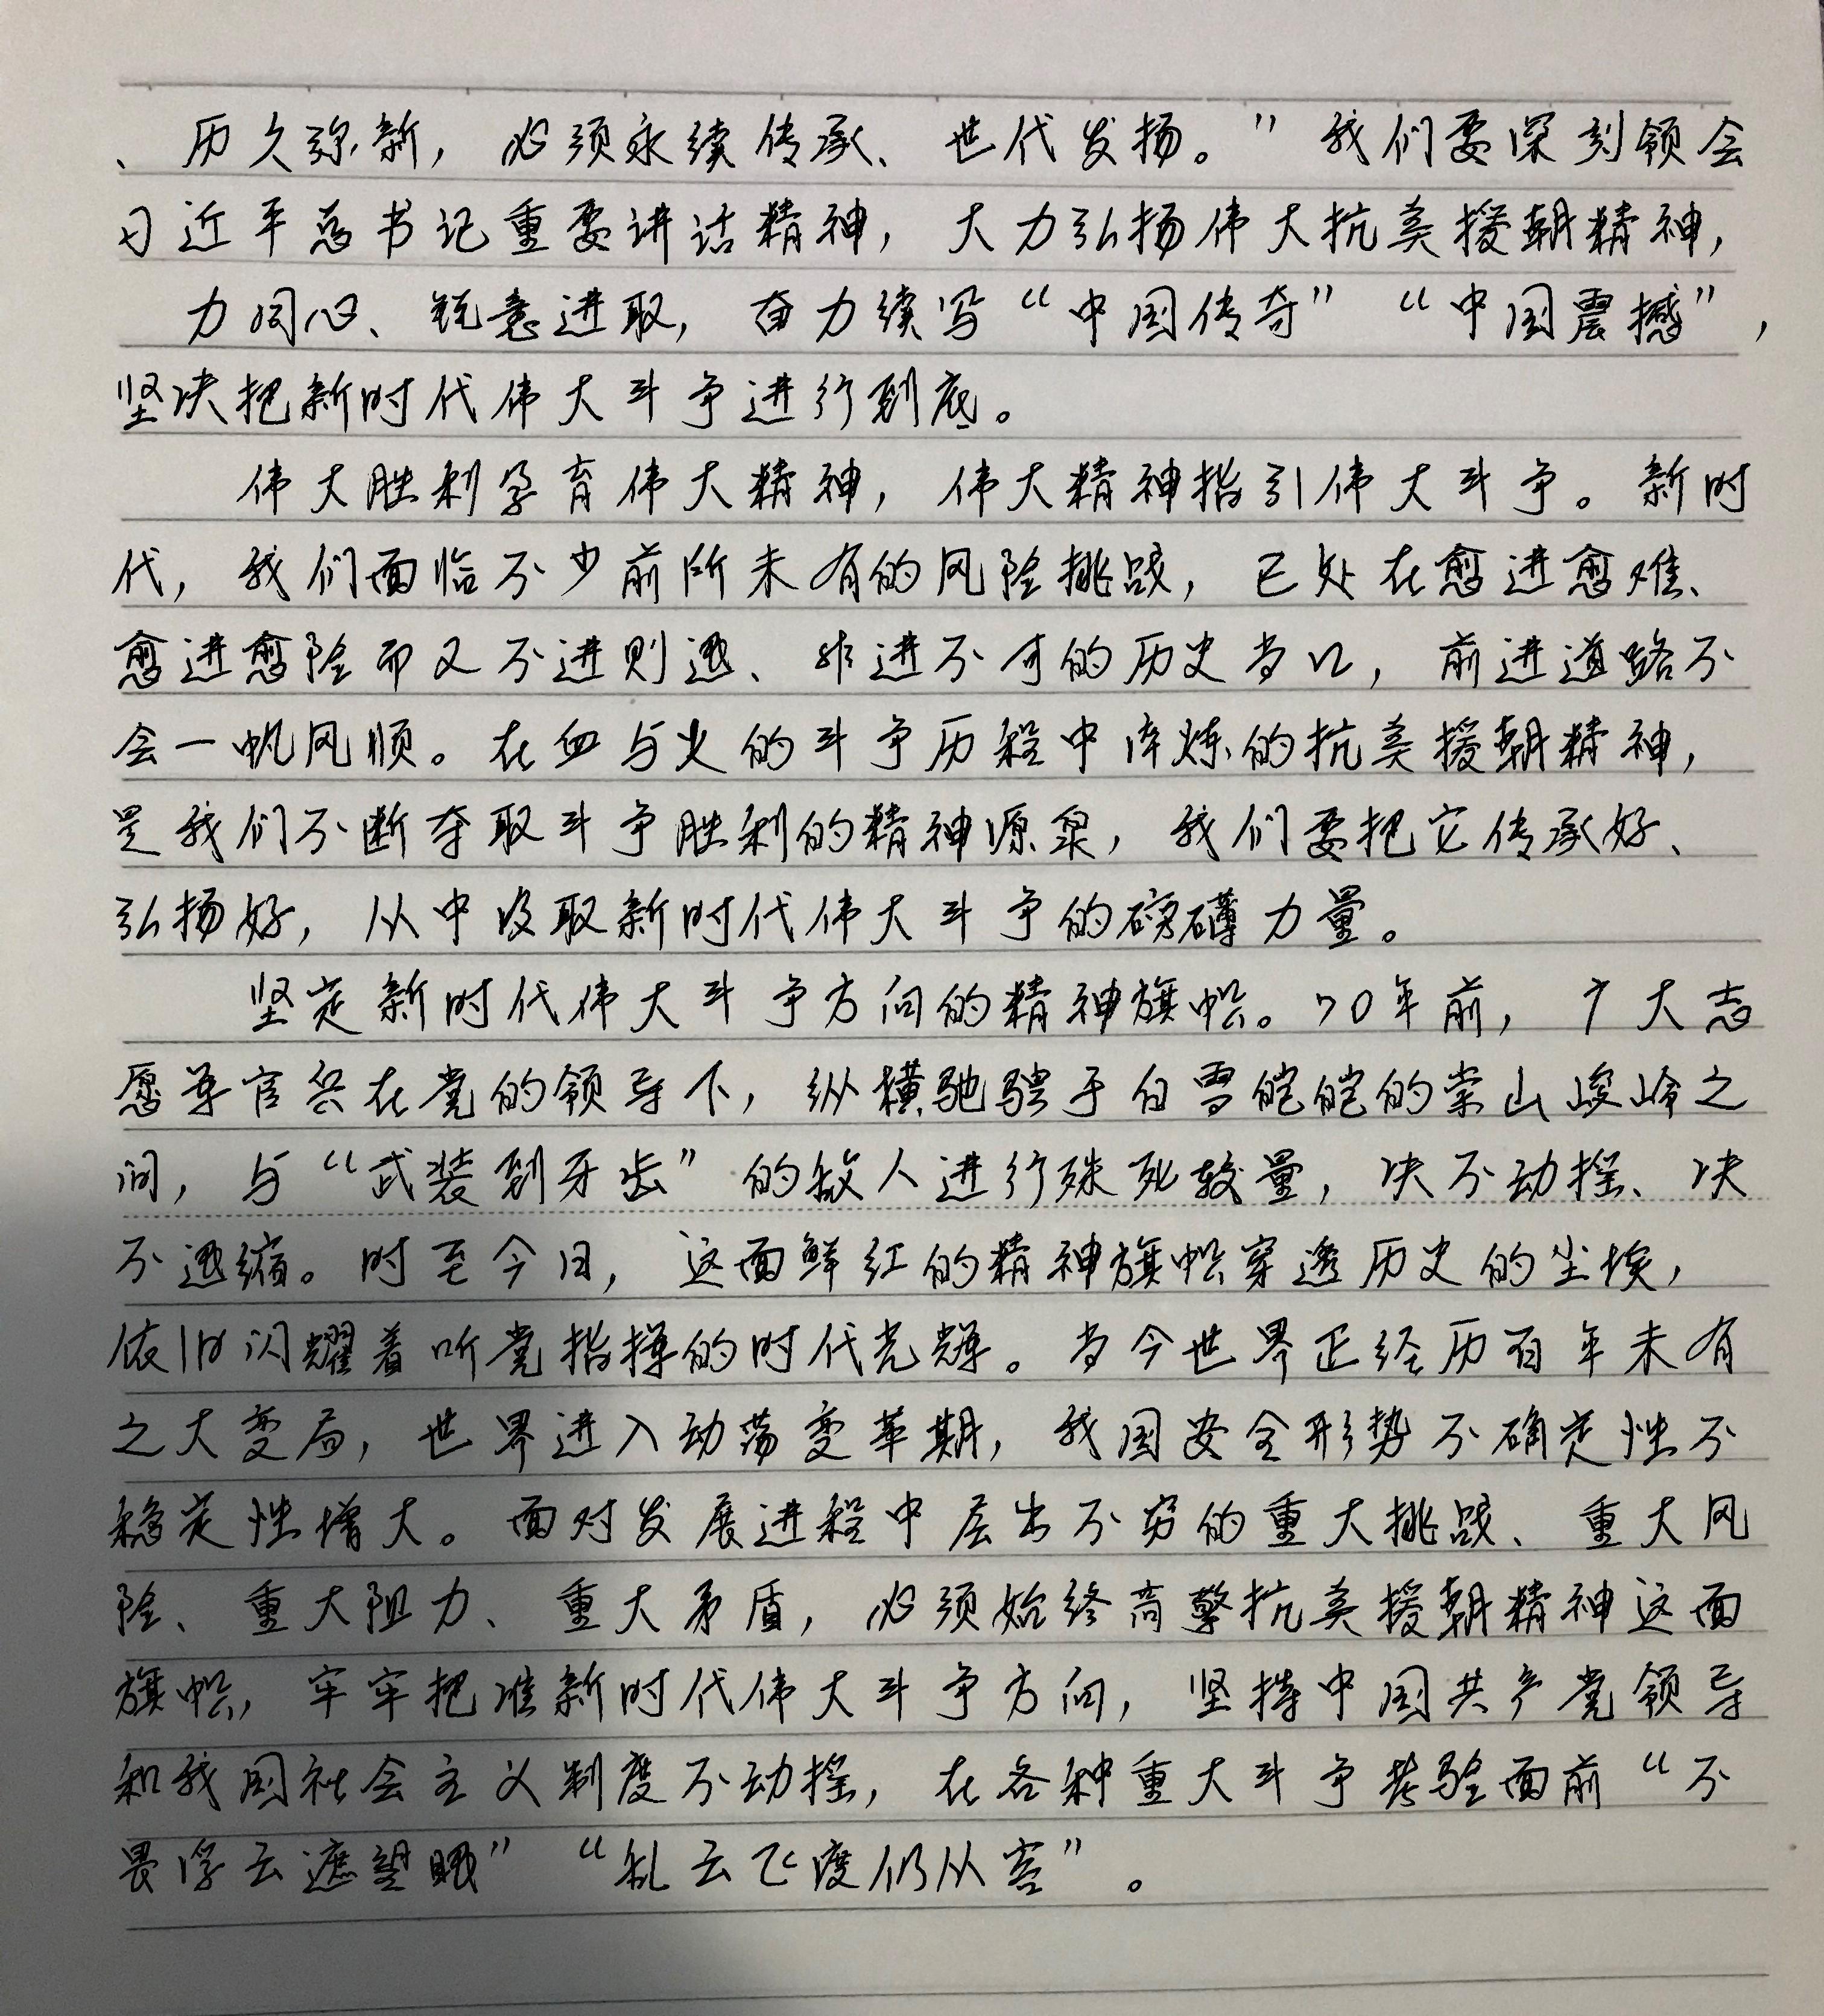 、历久弥新，必须永续传承、世代发扬。”我们要深刻领会
习近平总书记重要讲话精神，大力弘扬伟大抗美援朝精神，
力同心、锐意进取，奋力续写“中国传奇”“中国震撼”，
坚决把新时代伟大斗争进行到底。
伟大胜利孕育伟大精神，伟大精神指引伟大斗争。新时
代，我们面临不少前所未有的风险挑战，已处在愈进愈难、
愈进愈险而又不进则退、非进不可的历史当口，前进道路不
会一帆风顺。在血与火的斗争历程中淬炼的抗美援朝精神，
是我们不断夺取斗争胜利的精神源泉，我们要把它传承好、
弘扬好，从中汲取新时代伟大斗争的磅礴力量。
坚定新时代伟大斗争方向的精神旗帜。70年前，广大志
愿军官兵在党的领导下，纵横驰骋于白雪皑皑的崇山峻岭之
间，与“武装到牙齿”的敌人进行殊死较量，决不动摇、决
不退缩。时至今日，这面鲜红的精神旗帜穿透历史的尘埃，
依旧闪耀着听党指挥的时代光辉。当今世界正经历百年未有
之大变局，世界进入动荡变革期，我国安全形势不确定性不
稳定性增大。面对发展进程中层出不穷的重大挑战、重大风
险、重大阻力、重大矛盾，必须始终高擎抗美援朝精神这面
旗帜，牢牢把准新时代伟大斗争方向，坚持中国共产党领导
和我国社会主义制度不动摇，在各种重大斗争考验面前“不
畏浮云遮望眼”“乱云飞度仍从容”。